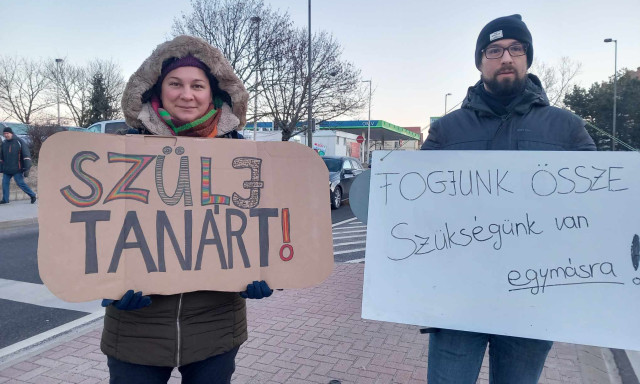 SZÜLJ
TANÁRT!
FOGJUNK ÖSSZE
Szükségünk van
egymásra!